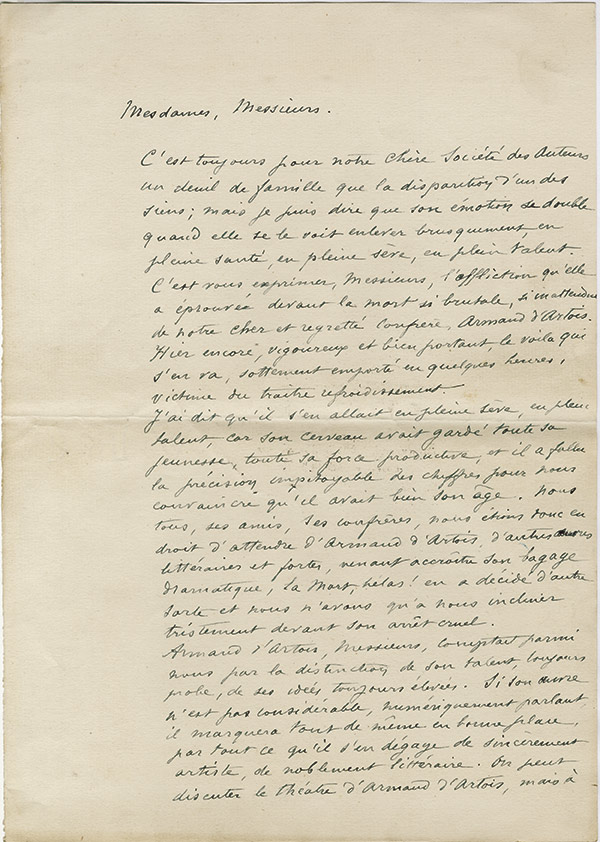 Mesdames, Messieurs.
C'est toujours pour notre chère Société des Auteurs
un deuil de famille que la disparition d'un des
siens ; mais je puis dire que son émotion se double
quand elle se le voit enlever brusquement, en
pleine santé, en pleine sève, en plein talent.
C'est vous exprimer, Messieurs, l'affliction qu'elle
a éprouvée devant la mort si brutale, si inattendue
de notre cher et regretté confrère, Armand d'Artois.
Hier encore, vigoureux et bien portant, le voila qui
s'en va, sottement emporté en quelques heures,
victime du traitre refroidissement.
J'ai dit qu'il s'en allait en pleine sève, en plein
talent car son cerveau avait gardé toute sa
jeunesse, toute sa force productive, et il a fallu
la précision impitoyable des chiffres pour nous
convaincre qu'il avait bien son âge. Nous
tous, ses amis, ses confrères, nous étions donc en
droit d'attendre d'Armand d'Artois, d'autres œuvres
littéraires et fortes, venant accroître son bagage
dramatique, la Mort, hélas ! en a décidé d'autre
sorte et nous n'avons qu'à nous incliner
tristement devant son arrêt cruel.
Armand d'Artois, Messieurs, comptait parmi
nous par la distinction de son talent toujours
probe, de ses idées toujours élevées. Si son œuvre
n'est pas considérable, numériquement parlant,
il marquera tout de même en bonne place,
par tout ce qu'il s'en dégage de sincèrement
artiste, de noblement littéraire. On peut
discuter le théâtre d'Armand d'Artois, mais à